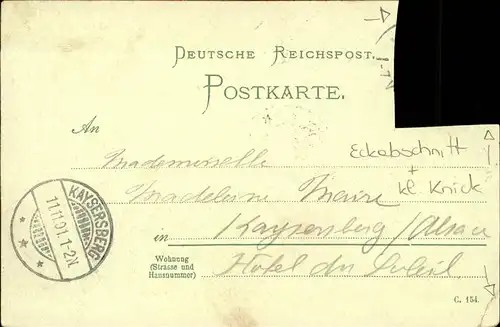 DEUTSCHE REICHSPOST.
POSTKARTE.
An
Mademoiselle
Eckabschnitt
+
kl. Knick
Madeleine Maire
KAYSERSBERG
11.11.01. 1-2N.
in Kaysersberg / Alsace
Wohnung
(Strasse und
Hausnummer)
Hôtel du Soleil
C. 154.